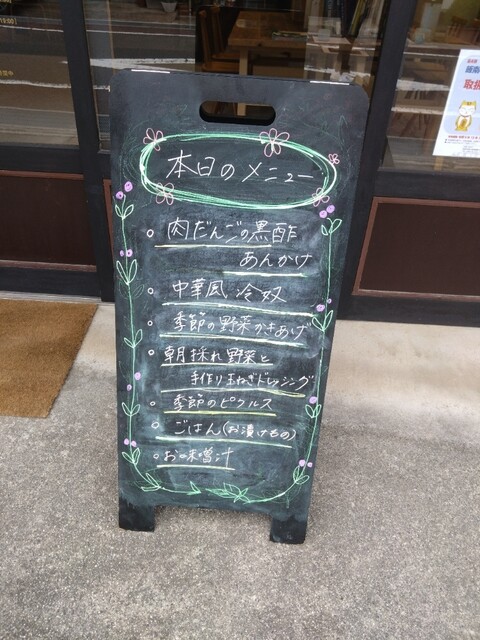 本日のメニュー
○ 肉だんごの黒酢
あんかけ
○ 中華風冷奴
○ 季節の野菜かきあげ
○ 朝採れ野菜と
手作り玉ねぎドレッシング
○ 季節のピクルス
○ ごはん(お漬けもの)
○ お味噌汁